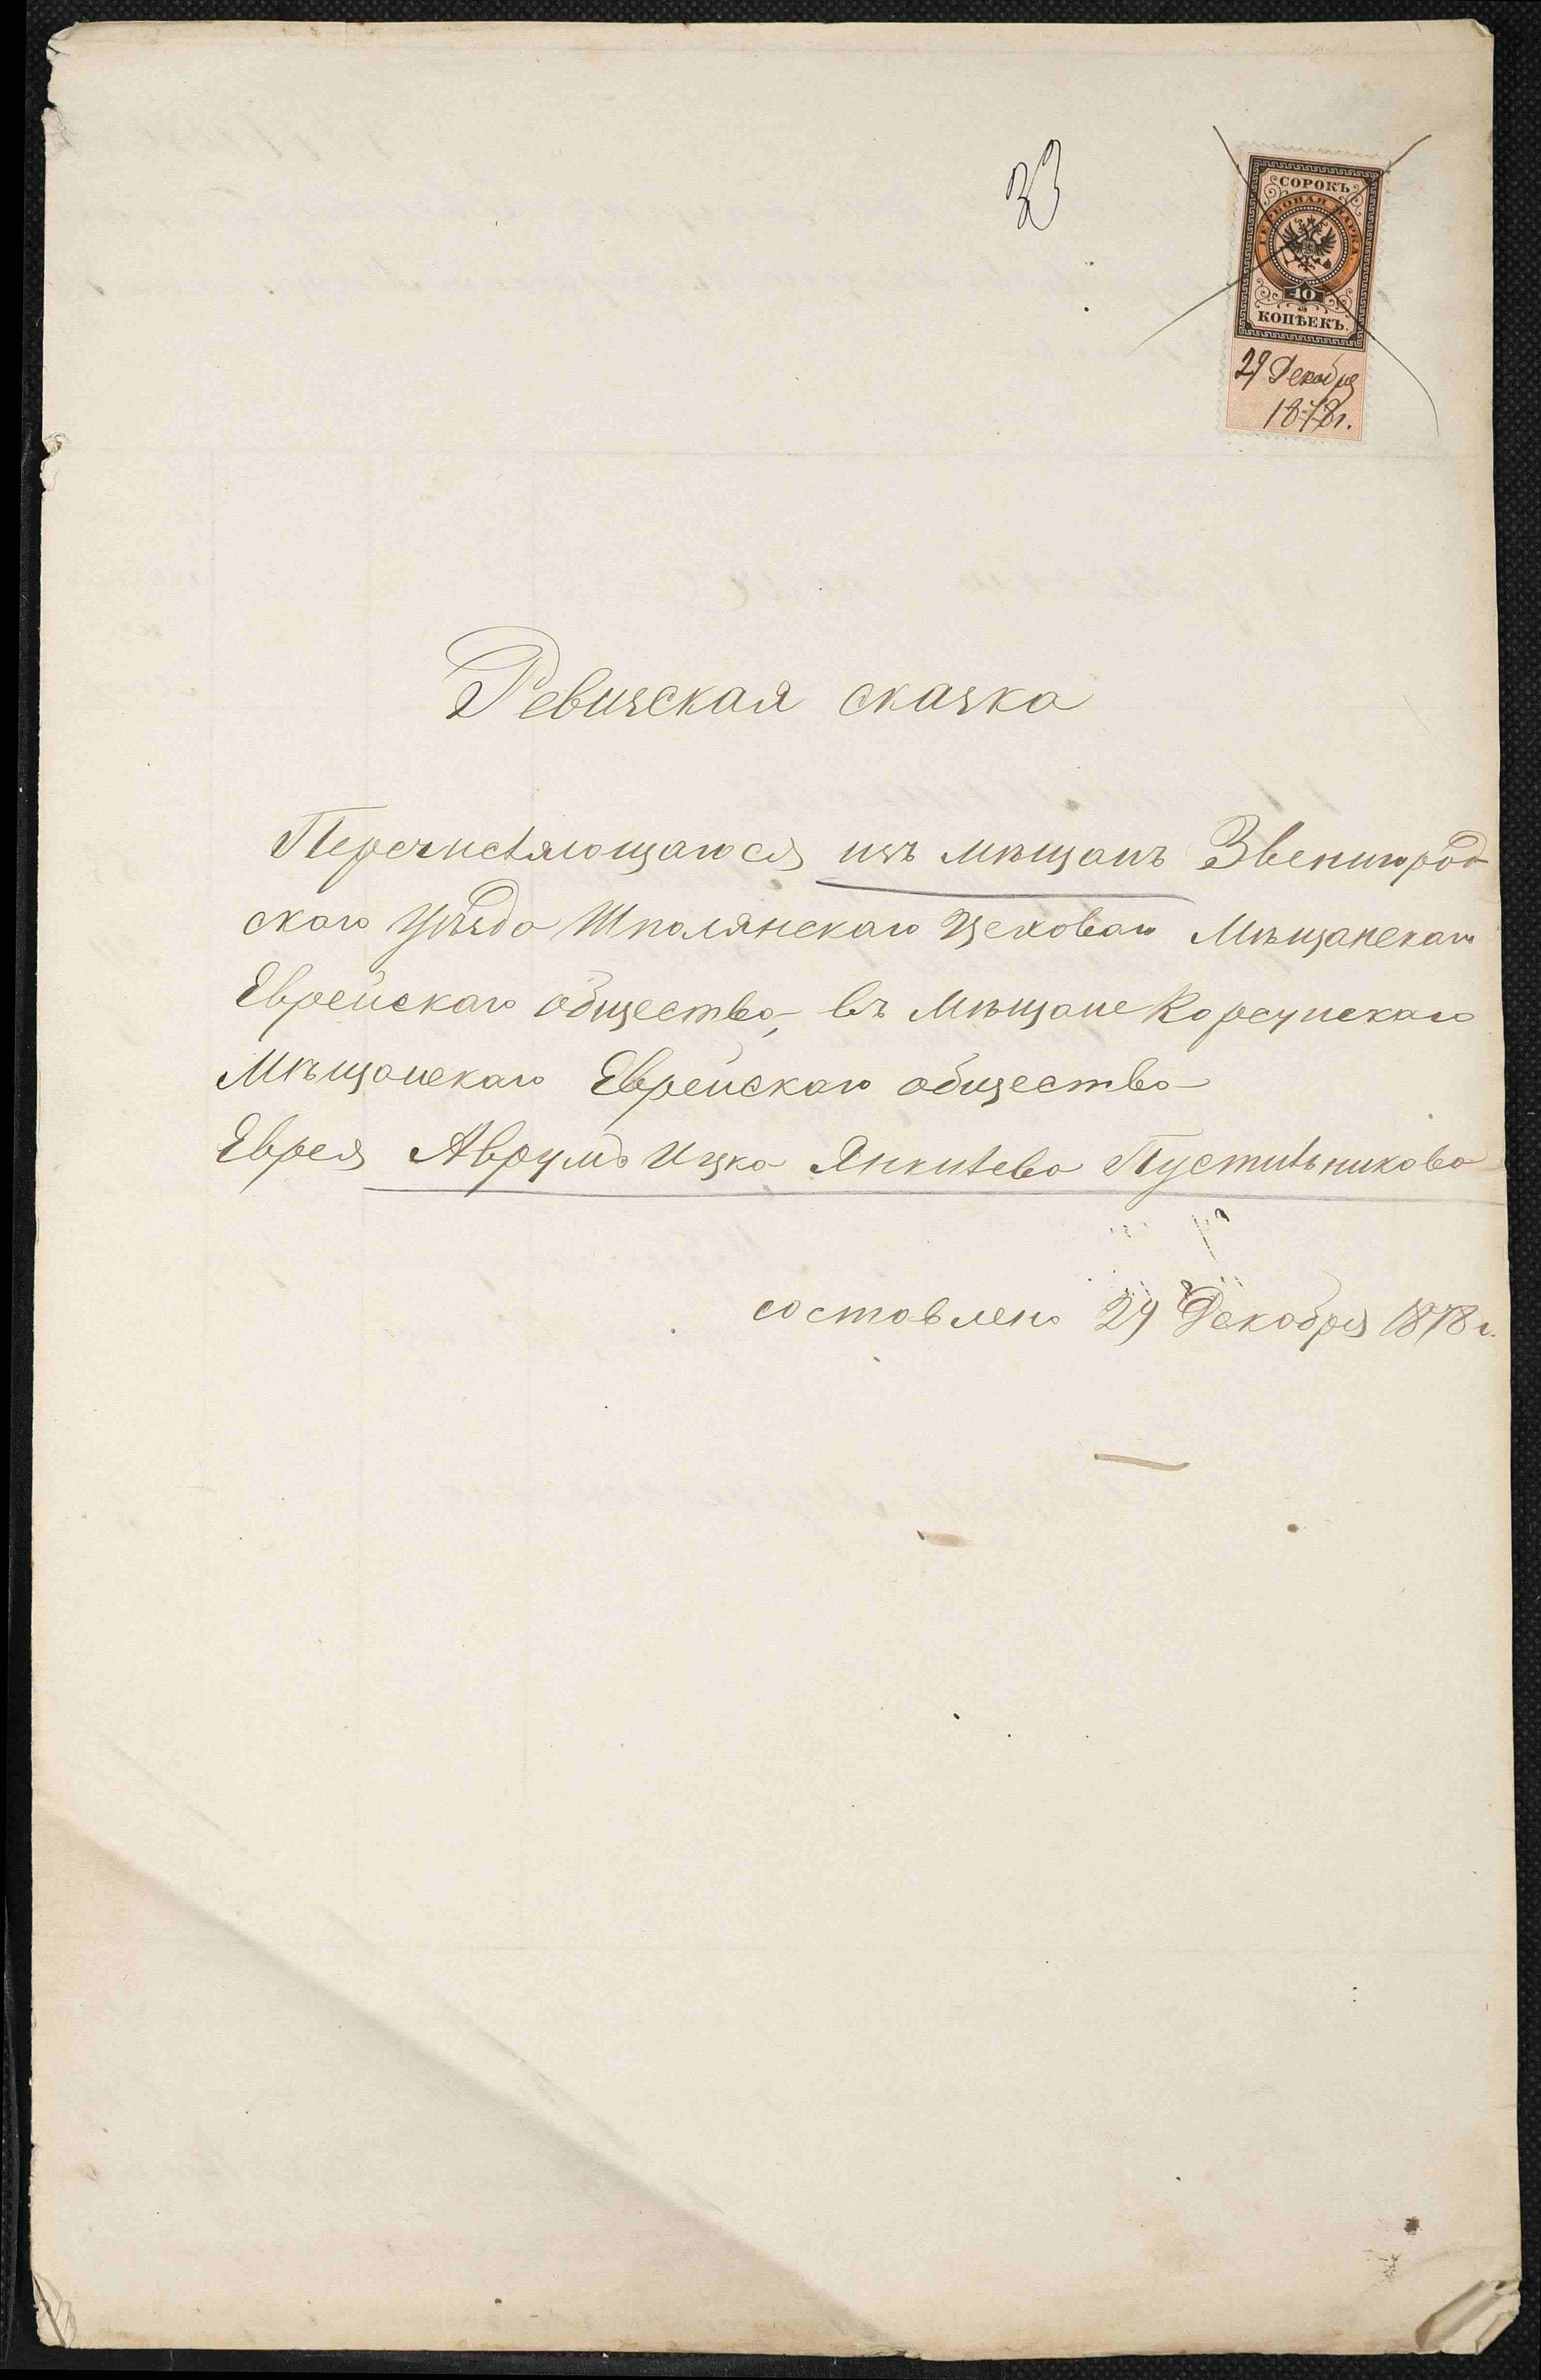 33
СОРОКЪ
ГЕРБОВАЯ МАРКА
40
КОПѢЕКЪ.
29 Декабря
1878 г.
Ревизская сказка
Перечисляющагося изъ мѣщанъ Звенигород
скаго уѣзда Шполянскаго Цеховаго Мѣщанскаго
Еврейскаго общества, въ мѣщане Корсунскаго
Мѣщанскаго Еврейскаго общества
Еврея Аврумъ Ицка Янкилева Пустильникова
составлено 29 Декабря 1878 г.